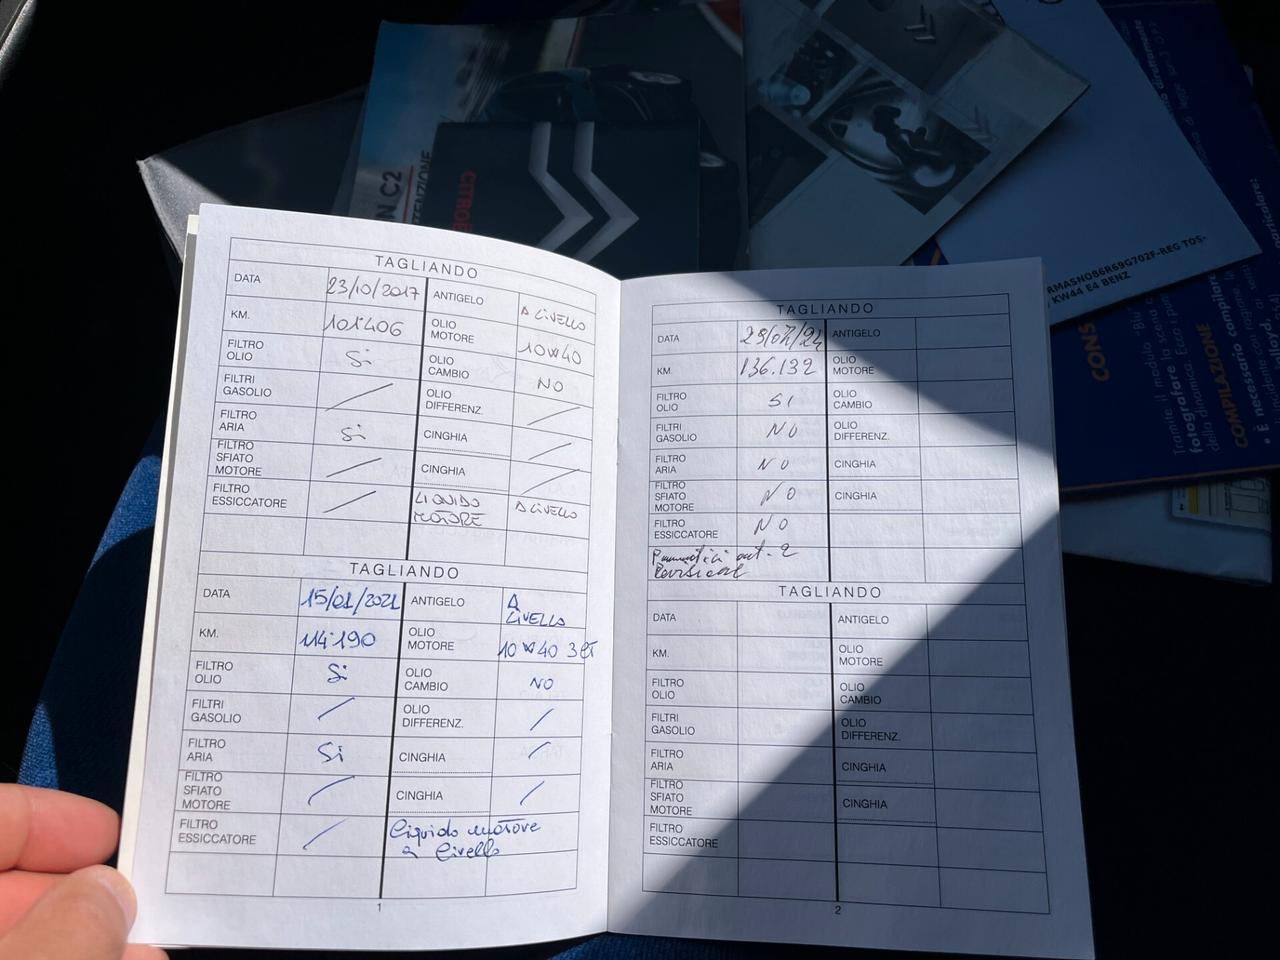 N C2
CITROË
RMASNO86R69G702F-REG TOS-
KW44 E4 BENZ
CONS
Tramite il modulo "Blu"
fotografare la scena
della dinamica. Ecco i
COMPILAZIONE
• È necessario compilare
TAGLIANDO
DATA 23/10/2017 ANTIGELO A LIVELLO
KM. 101406 OLIO MOTORE 10W40
FILTRO OLIO Si OLIO CAMBIO NO
FILTRI GASOLIO / OLIO DIFFERENZ. /
FILTRO ARIA Si CINGHIA /
FILTRO SFIATO MOTORE / CINGHIA /
FILTRO ESSICCATORE / LIQUIDO MOTORE A LIVELLO
TAGLIANDO
DATA 15/01/2021 ANTIGELO A LIVELLO
KM. 114.190 OLIO MOTORE 10W40 3 LT
FILTRO OLIO Si OLIO CAMBIO NO
FILTRI GASOLIO / OLIO DIFFERENZ. /
FILTRO ARIA Si CINGHIA /
FILTRO SFIATO MOTORE / CINGHIA /
FILTRO ESSICCATORE / Liquido motore
a livello
1
TAGLIANDO
DATA 29/07/24 ANTIGELO
KM. 136.132 OLIO MOTORE
FILTRO OLIO SI OLIO CAMBIO
FILTRI GASOLIO NO OLIO DIFFERENZ.
FILTRO ARIA NO CINGHIA
FILTRO SFIATO MOTORE NO CINGHIA
FILTRO ESSICCATORE NO
Pneumatici ant. 2
Revisione
TAGLIANDO
DATA ANTIGELO
KM. OLIO MOTORE
FILTRO OLIO OLIO CAMBIO
FILTRI GASOLIO OLIO DIFFERENZ.
FILTRO ARIA CINGHIA
FILTRO SFIATO MOTORE CINGHIA
FILTRO ESSICCATORE
2